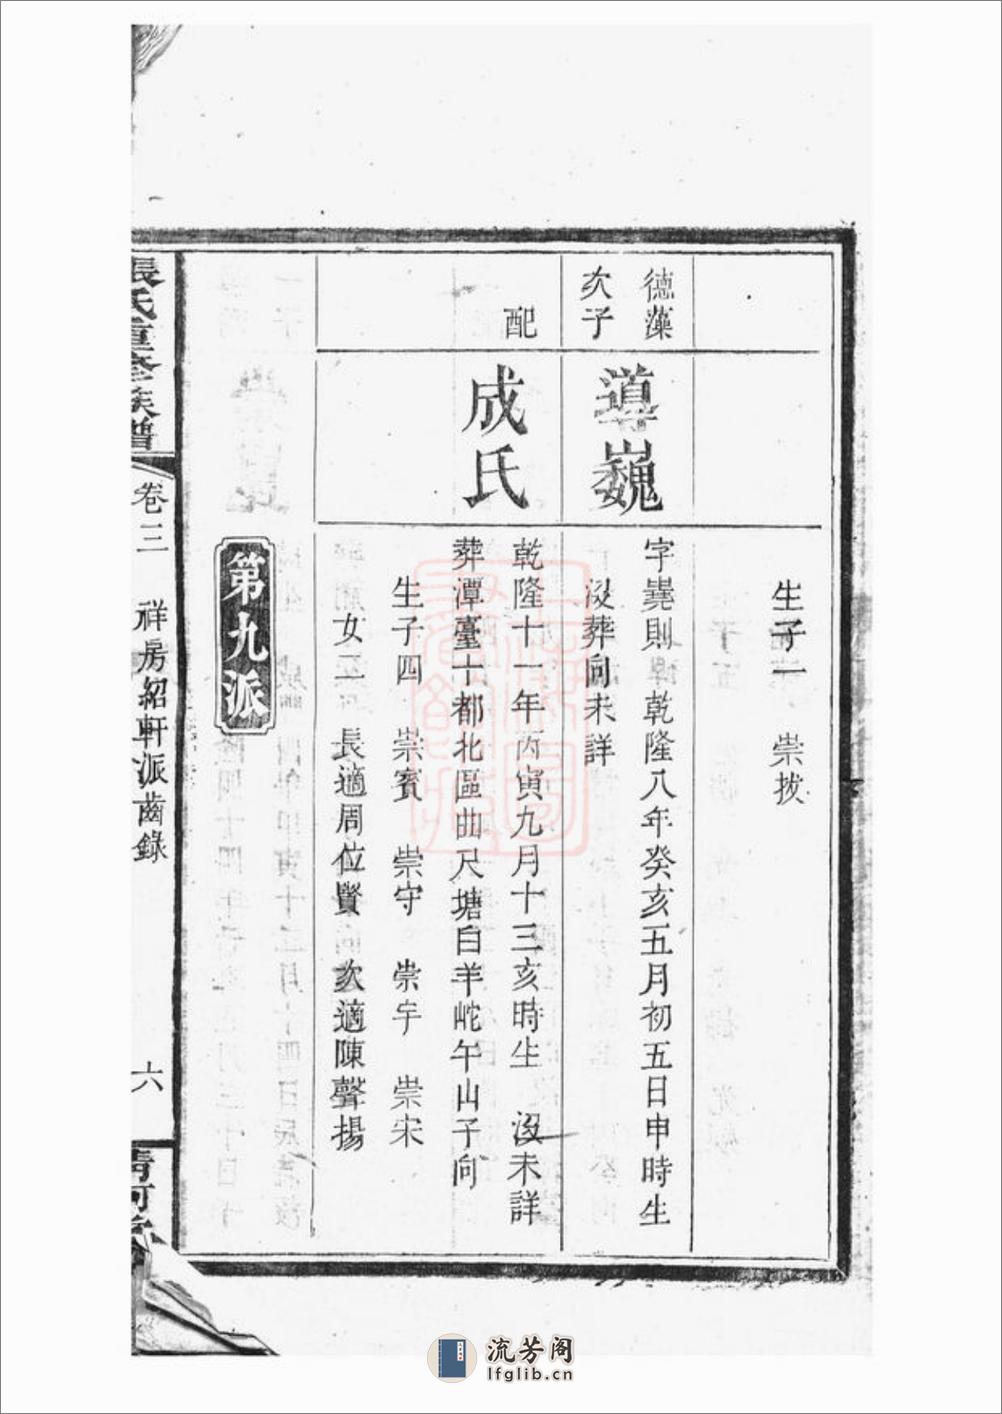 生子一　崇拔
德藻
次子
導巍
字嶤則乾隆八年癸亥五月初五日申時生
沒葬向未詳
配
成氏
乾隆十一年丙寅九月十三亥時生　沒未詳
葬潭臺十都北區曲尺塘白羊𡶕午山子向
生子四　崇賓　崇守　崇宇　崇宋
女二　長適周位賢　次適陳聲揚
第九派
張氏重修族譜
卷三　祥房紹軒派齒錄
六
流芳阁
lfglib.cn